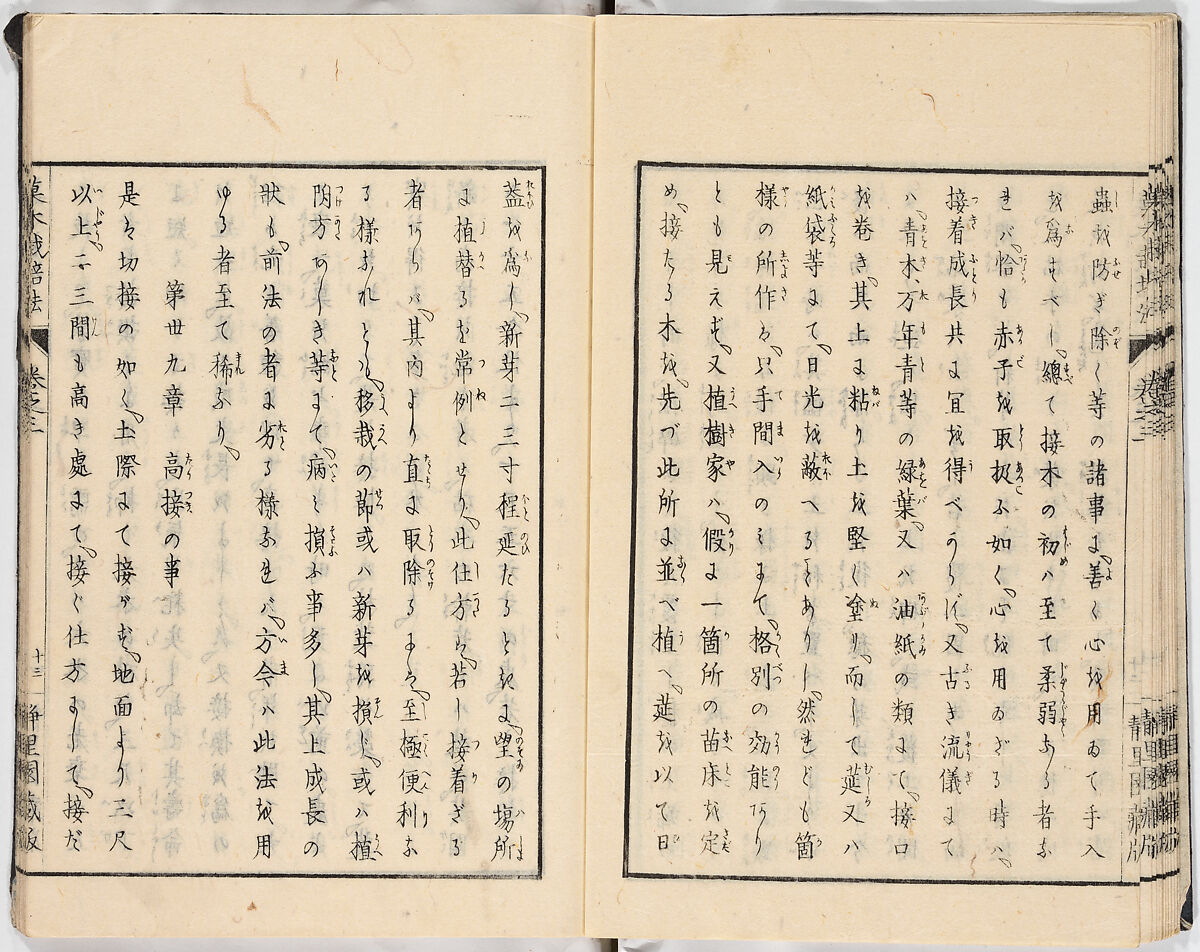 蟲を防ぎ除く等の諸事に善く心を用ゐて手入
を爲すべし、總て接木の初ハ至て柔弱なる者な
れバ、恰も赤子を取扱ふ如く、心を用ゐざる時ハ、
接着成長共に冝を得べからず、又古き流儀にて
ハ、青木、万年青等の緑葉、又ハ油紙の類にて、接口
を巻き、其上に粘り土を堅く塗り、而して莚又ハ
紙袋等にて、日光を蔽へるもあり、然れども箇
様の所作は、只手間入のミにて、格別の効能あり
とも見えず、又植樹家ハ、假に一箇所の苗床を定
め、接たる木を、先づ此所に並べ植へ、莚を以て日
葢を爲し、新芽二三寸程延たるときに、望の場所
に植替るを常例とせり、此仕方は、若し接着ざる
者あらバ、其内より直に取除るに、至極便利な
る様なれとも、移栽の節或ハ新芽を損し、或ハ植
附方あしき等にて、病ミ損ふ事多し、其上成長の
状も、前法の者に劣る様なれバ、方今ハ此法を用
ゆる者至て稀なり、
第丗九章 高接の事
是は切接の如く、土際にて接がず、地面より三尺
以上二三間も高き處にて、接ぐ仕方にして、接だ
菓木栽培法 巻之三 十三 静里園蔵版